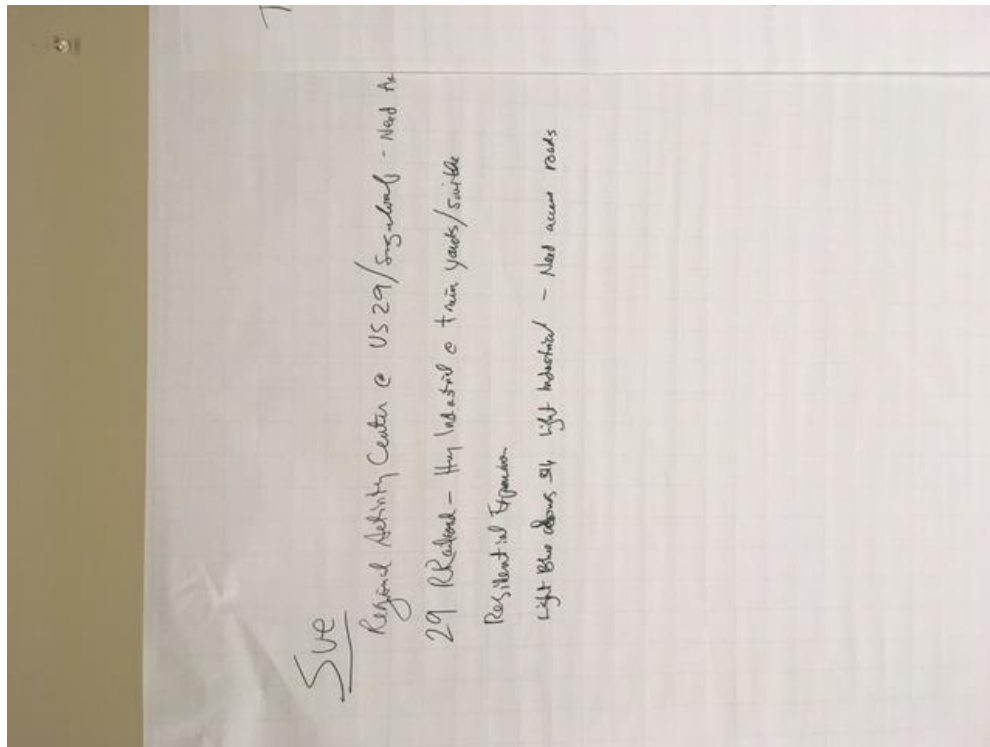 Sue
Regional Activity Center @ US 29/ - Need
29 RRailroad - Hvy Industrial @ train yards/
Residential Expansion
Light Blue along Light Industrial - Need access roads